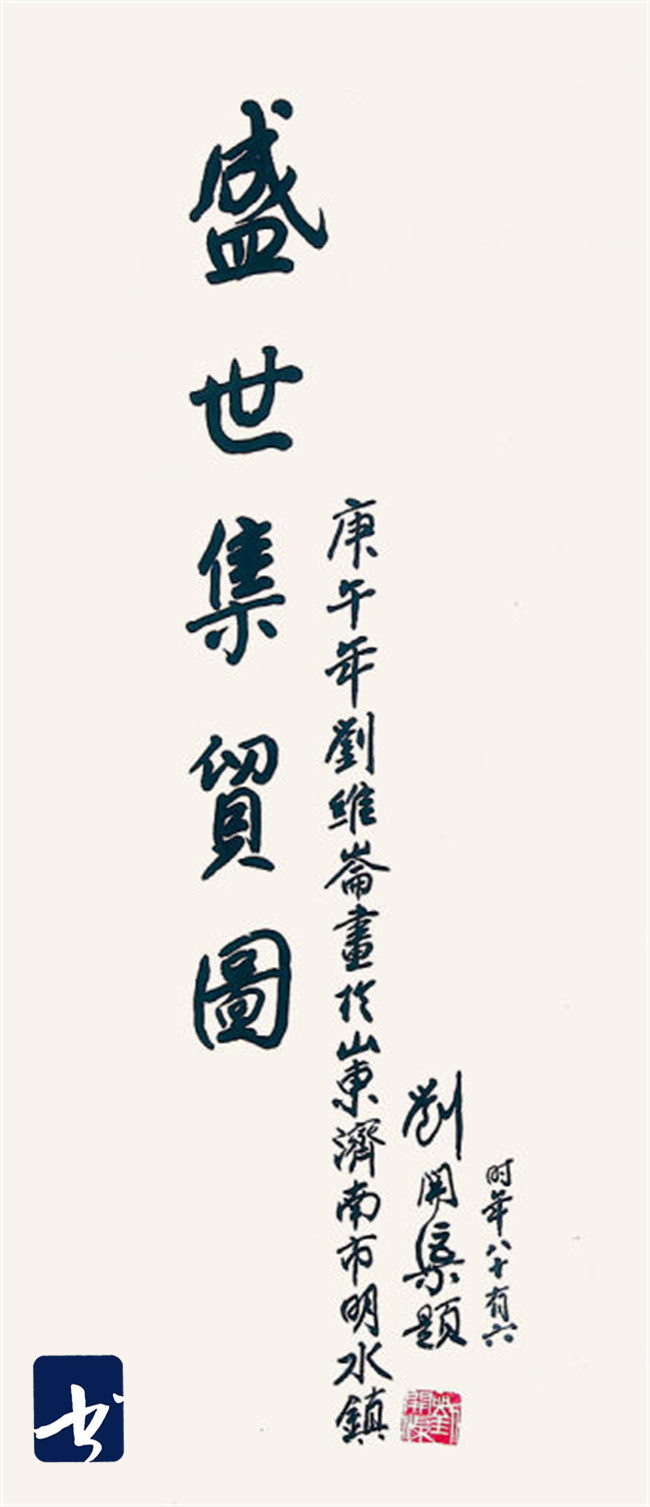 盛世集貿圖
庚午年劉維崙畫於山東濟南市明水鎮
劉開渠題
时年八十有六
劉開渠
书